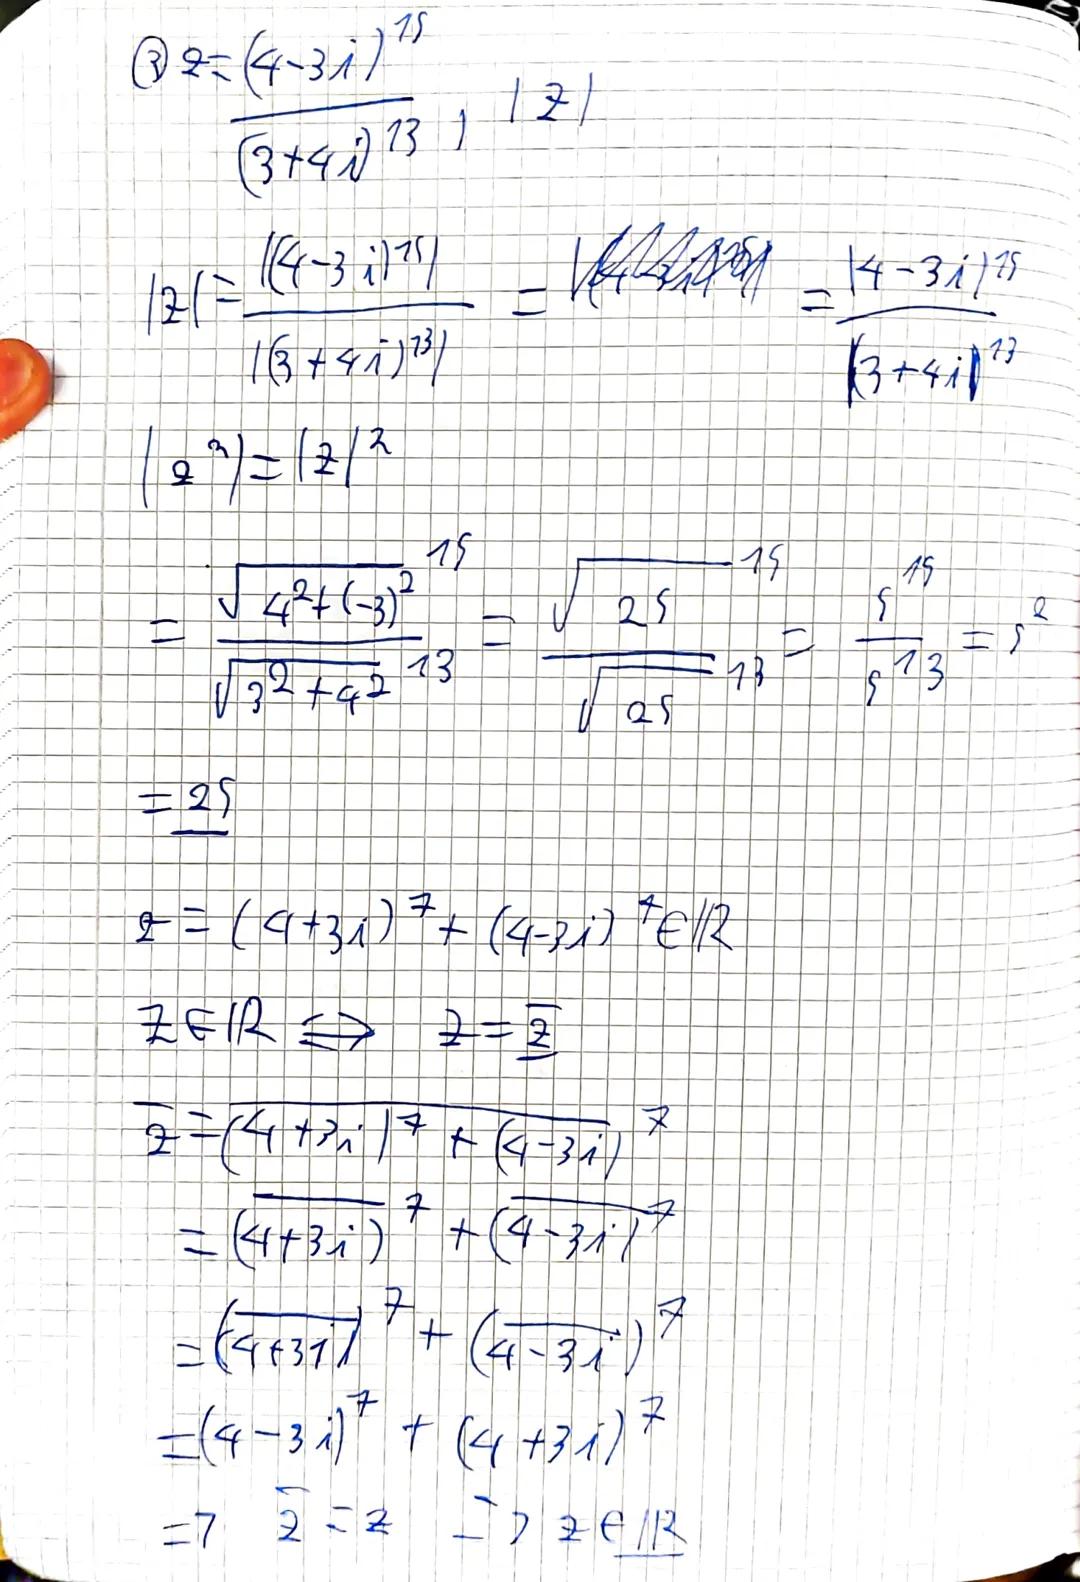 ③ z = (4-3i)^15 / (3+4i)^13 , |z|
|z| = |(4-3i)^15| / |(3+4i)^13| = = |4-3i|^15 / |3+4i|^13
|z^n| = |z|^2
= √(4²+(-3)²)^15 / √(3²+4²)^13 = √25^15 / √25^13 = 5^15 / 5^13 = 5²
= 25
z = (4+3i)^7 + (4-3i)^7 ∈ ℝ
z ∈ ℝ ⇔ z = z̅
z̅ = \overline{(4+3i)^7 + (4-3i)^7}
= \overline{(4+3i)^7} + \overline{(4-3i)^7}
= (\overline{4+3i})^7 + (\overline{4-3i})^7
= (4-3i)^7 + (4+3i)^7
=> z̅ = z => z ∈ ℝ